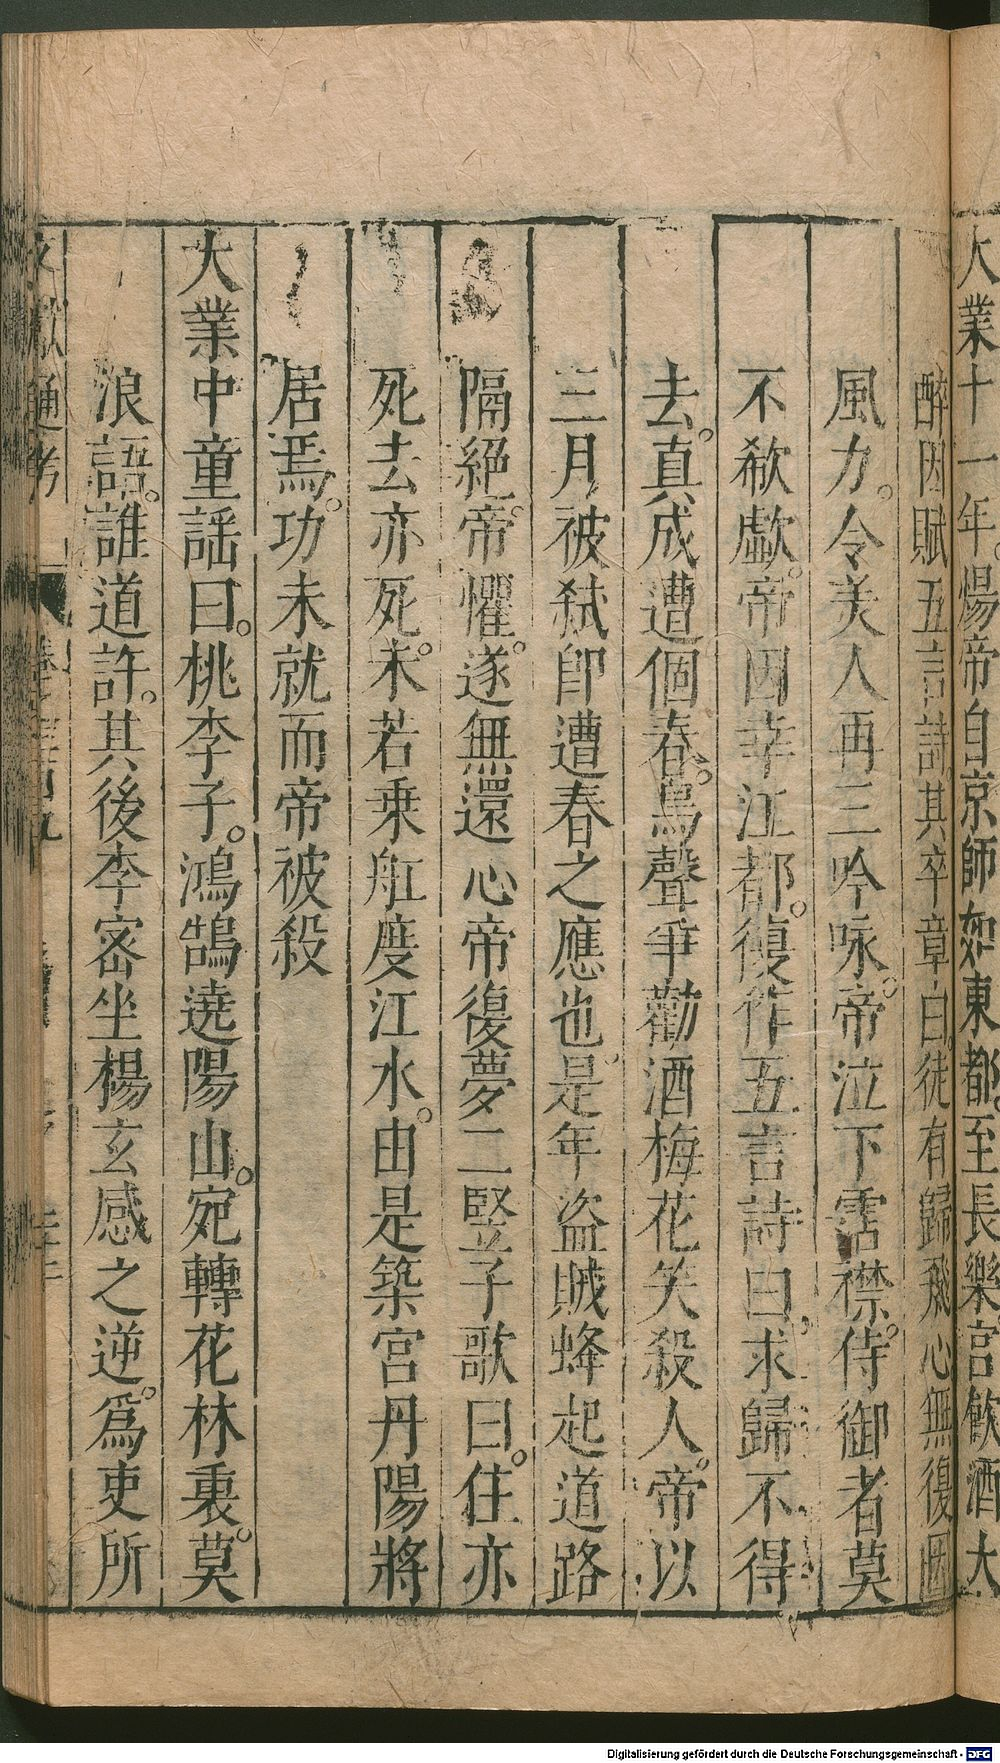 大業十一年。煬帝自京師如東都。至長樂宮飲酒大
醉因賦五言詩。其卒章曰。徒有歸飛心無復因
風力。令美人再三吟咏。帝泣下霑襟。侍御者莫
不欷歔。帝因幸江都。復作五言詩曰求歸不得
去。真成遭個春。鳥聲爭勸酒梅花笑殺人。帝以
三月被弒卽遭春之應也是年盜賊蜂起道路
隔絕。帝懼。遂無還心帝復夢二竪子歌曰。住亦
死去亦死。未若乗舡度江水。由是築宮丹陽將
居焉。功未就而帝被殺
大業中童謡曰。桃李子。鴻鵠遶陽山。宛轉花林裏。莫
浪語。誰道許。其後李密坐楊玄感之逆。爲吏所
文獻通考
Digitalisierung gefördert durch die Deutsche Forschungsgemeinschaft - DFG